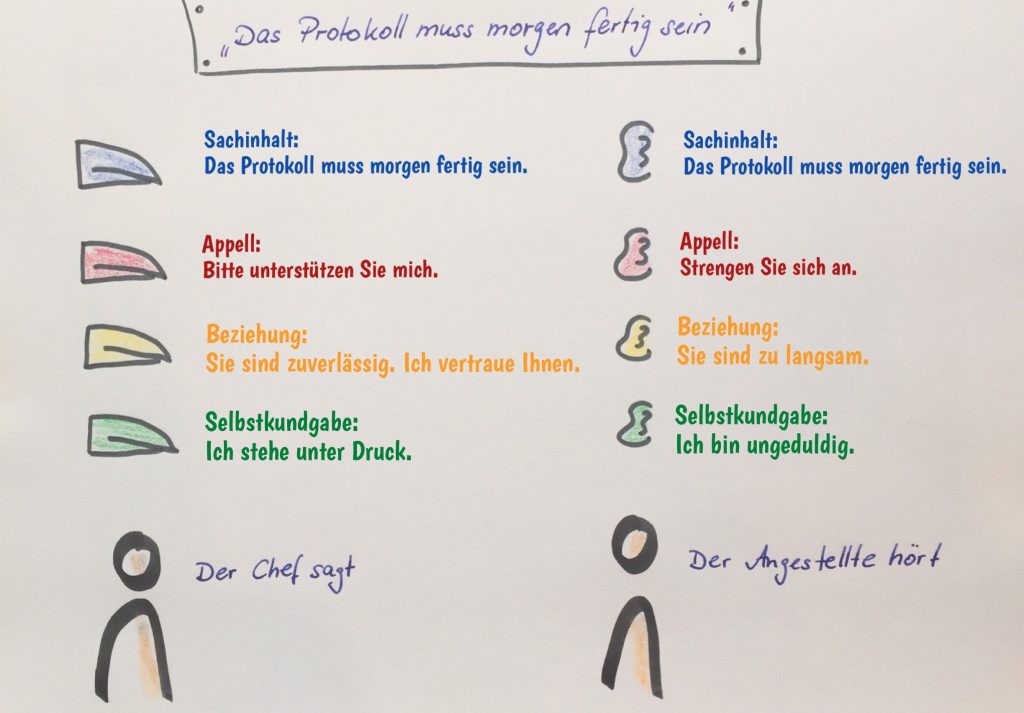 „Das Protokoll muss morgen fertig sein"
Sachinhalt:
Das Protokoll muss morgen fertig sein.
Appell:
Bitte unterstützen Sie mich.
Beziehung:
Sie sind zuverlässig. Ich vertraue Ihnen.
Selbstkundgabe:
Ich stehe unter Druck.
Der Chef sagt
Sachinhalt:
Das Protokoll muss morgen fertig sein.
Appell:
Strengen Sie sich an.
Beziehung:
Sie sind zu langsam.
Selbstkundgabe:
Ich bin ungeduldig.
Der Angestellte hört